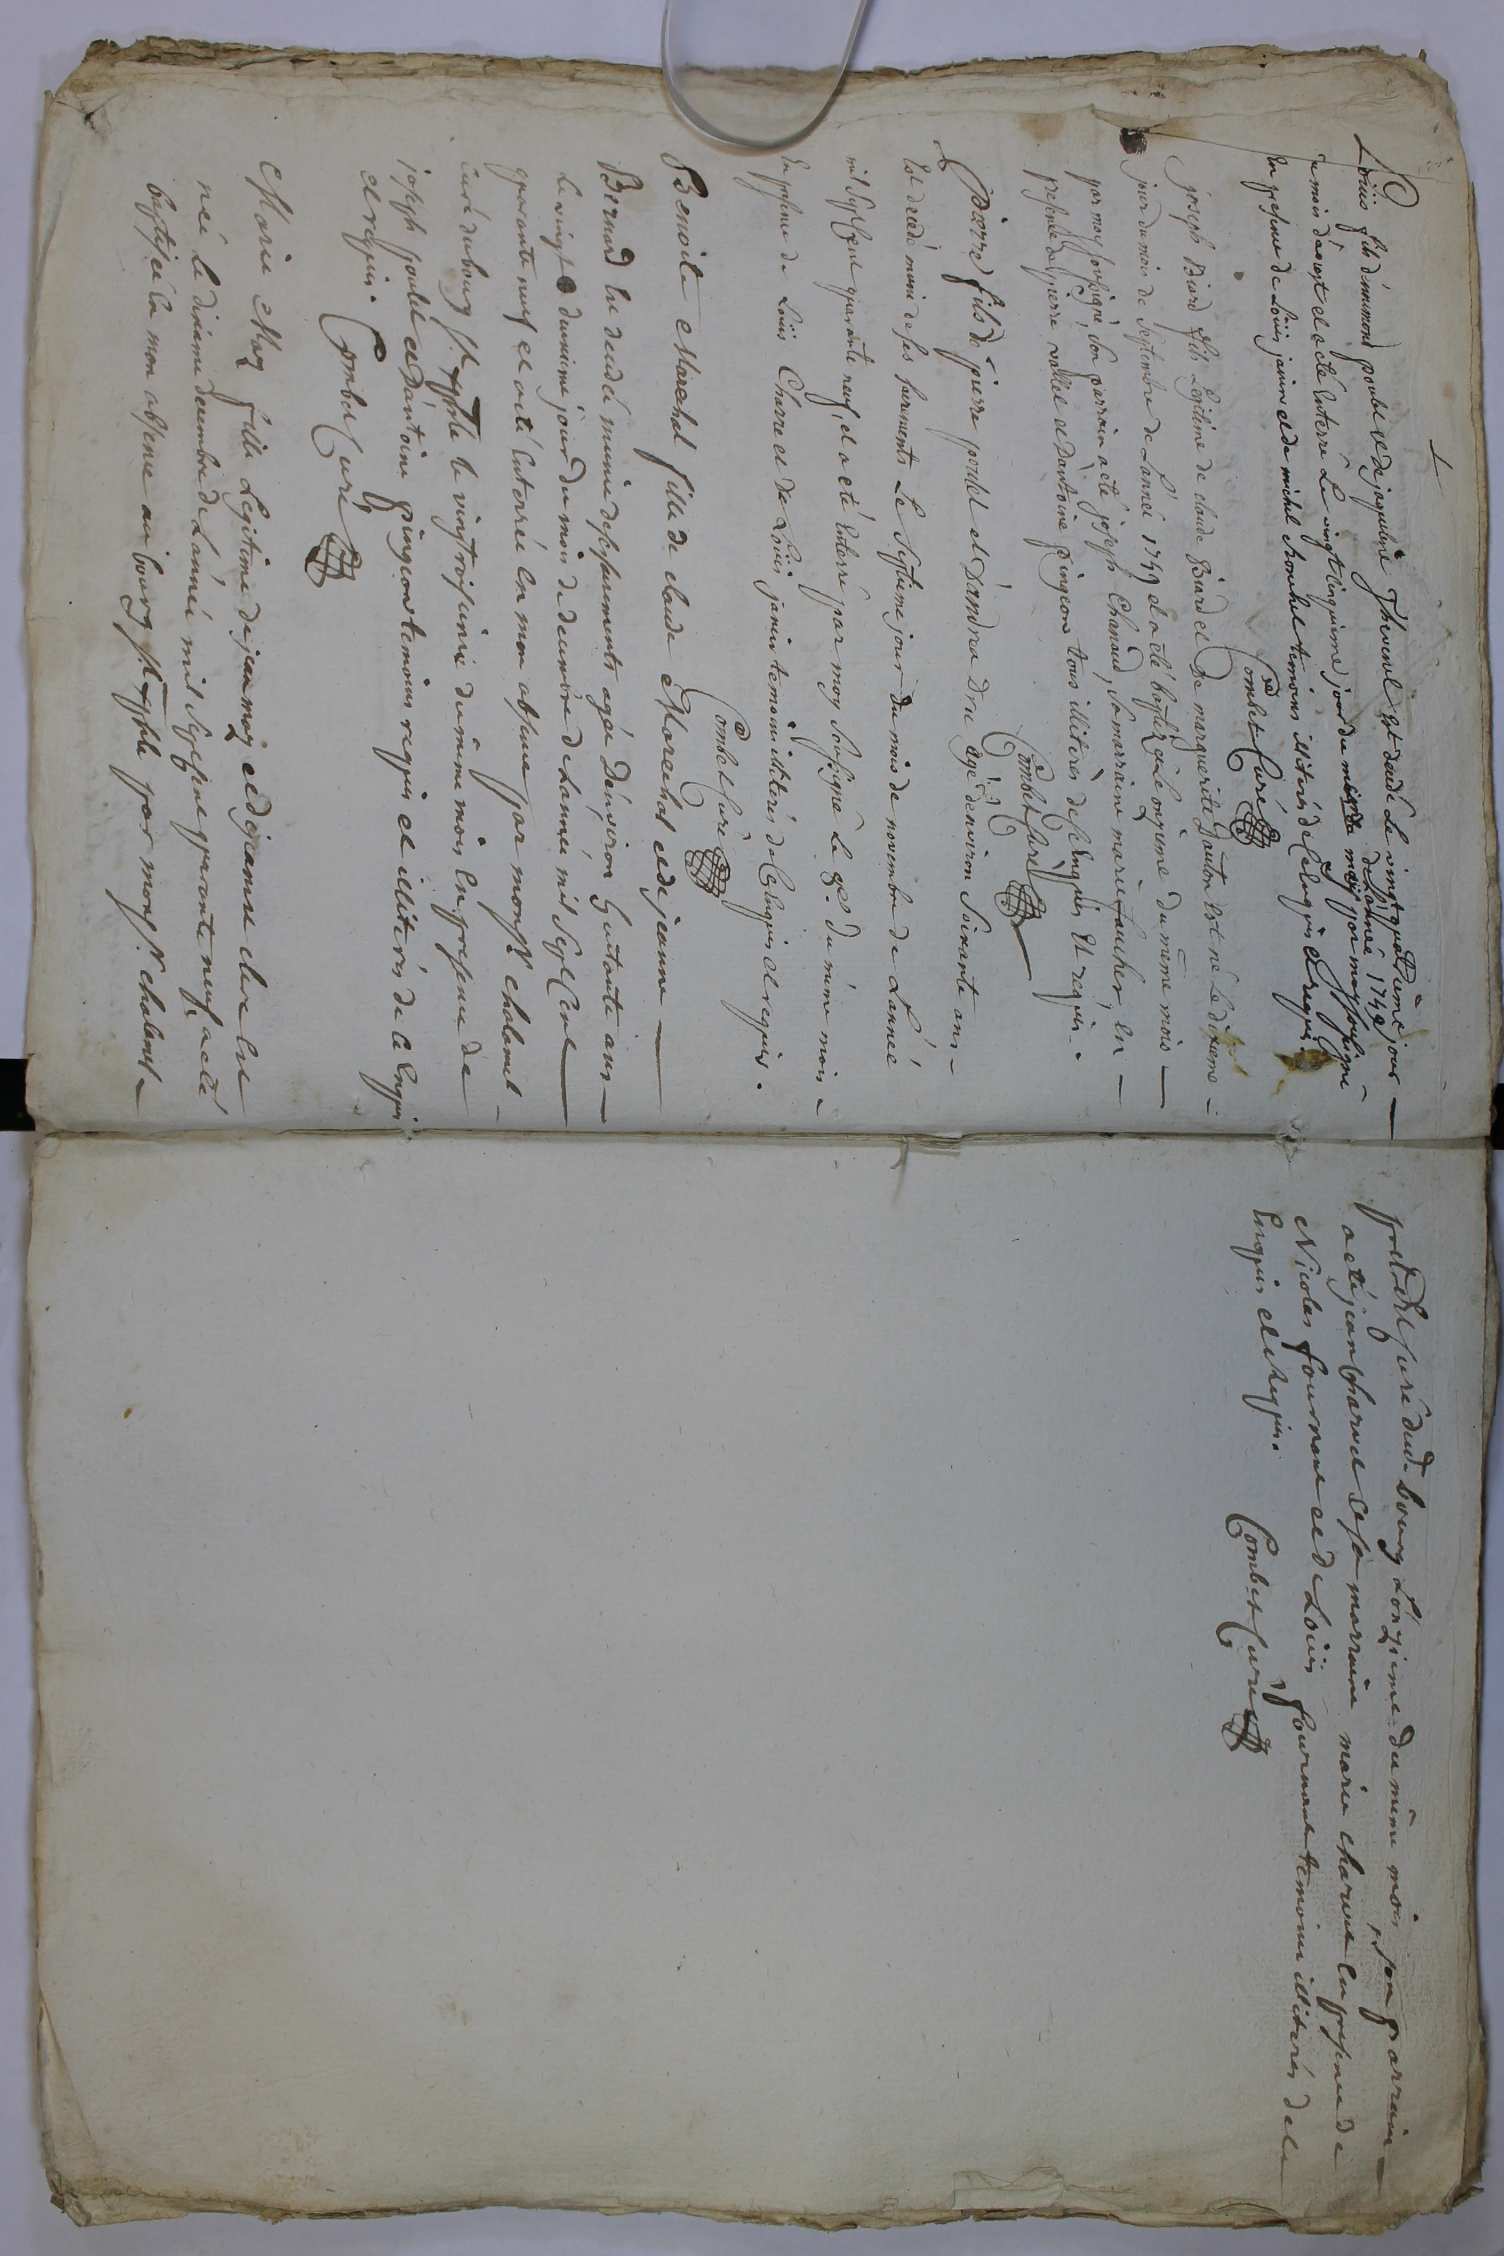 Loüis fils d'ennemond poulet et de jaqueline Thevenet est decedé Le vingtquatrieme jour
du mois d'aoust et a eté Enterré Le vingtcinquieme jour du mesme mois de Lannée 1749 par moy soussigné
En presence de Loüis janin et de michel Trouchet temoins illiterés de ce Enquis et requis.
Combet Curé
joseph Biard fils Legitime de claude Biard et de marguerite Gauton est né Le dixieme
jour du mois de septembre de L'année 1749 et a eté baptizé Le onzieme du même mois
par moy soussigné, son parrain a eté joseph Chanaud, sa marraine marie faucher, En
presence de pierre vallet et d'antoine pingeon tous illiterés de ce Enquis Et requis.
Combet Curé
Pierre fils de pierre poulet et d'andrea Dru agé d'environ soixante ans
Est decedé muni de ses sacrements Le septieme jour du mois de novembre de L'année
mil sept Cent quarante neuf, et a eté Enterré par moy soussigné Le 9e. du même mois
En presence de Loüis Charre et de Loüis janin temoins illiterés de ce Enquis et requis.
Combet Curé
Benoite Marechal fille de claude Marechal et de jeanne
Bernard est decedée munie de ses sacrements agée D'environ huitante ans
Le vingt deuxieme jour du mois de decembre de Lannée mil sept Cent
quarante neuf et a eté Enterrée En mon absence par monsr. chalumet
curé du bourg st. Cristophle le vingtroisieme du même mois En presence de
joseph poulet et d'antoine pingeon temoins requis et illiterés de ce Enquis
et requis.
Combet Curé
Marie May fille Legitime de jean may et de jeanne clere est
née le dixieme decembre de Lannée mil sept cent quarante neuf, a eté
baptisée En mon absence au bourg st. Cristophle par monsr. chalumet
pretre et curé dud. bourg L'onzieme du même mois, son parrain
a eté jean Charvet et sa marraine marie charvet En presence de
Nicolas fournant et de Loüis fournant temoins illiterés de ce
Enquis et Requis.
Combet Curé